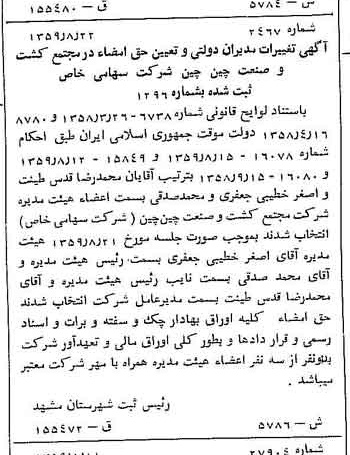 ش — ۵۷۸۴ ق — ۱۵۵۴۸۰
شماره ۲۴۶۷ ۱۳۵۹/۸/۲۲
آگهی تغییرات مدیران دولتی و تعیین حق امضاء در مجتمع کشت
و صنعت چین چین شرکت سهامی خاص
ثبت شده بشماره ۱۲۹۶
باستناد لوایح قانونی شماره ۶۷۳۸ — ۱۳۵۸/۳/۲۶ و ۸۷۸۰
۱۳۵۸/۴/۱۶ دولت موقت جمهوری اسلامی ایران طبق احکام
شماره ۱۶۰۷۸ — ۱۳۵۹/۸/۱۵ و ۱۵۸۴۹ — ۱۳۵۹/۸/۱۲
و ۱۶۰۸۰ — ۱۳۵۸/۹/۱۵ بترتیب آقایان محمدرضا قدس طینت
و اصغر خطیبی جعفری و محمدصدقی بسمت اعضاء هیئت مدیره
شرکت مجتمع کشت و صنعت چین‌چین ( شرکت سهامی خاص )
انتخاب شدند بموجب صورت جلسه مورخ ۱۳۵۹/۸/۲۱ هیئت
مدیره آقای اصغر خطیبی جعفری بسمت رئیس هیئت مدیره و
آقای محمد صدقی بسمت نایب رئیس هیئت مدیره و آقای
محمدرضا قدس طینت بسمت مدیرعامل شرکت انتخاب شدند
حق امضاء کلیه اوراق بهادار چک و سفته و برات و اسناد
رسمی و قرار دادها و بطور کلی اوراق مالی و تعهدآور شرکت
بدونفر از سه نفر اعضاء هیئت مدیره همراه با مهر شرکت معتبر
میباشد .
رئیس ثبت شهرستان مشهد
ش — ۵۷۸۶ ق — ۱۵۵۴۷۲
شماره ۲۷۹۰۴